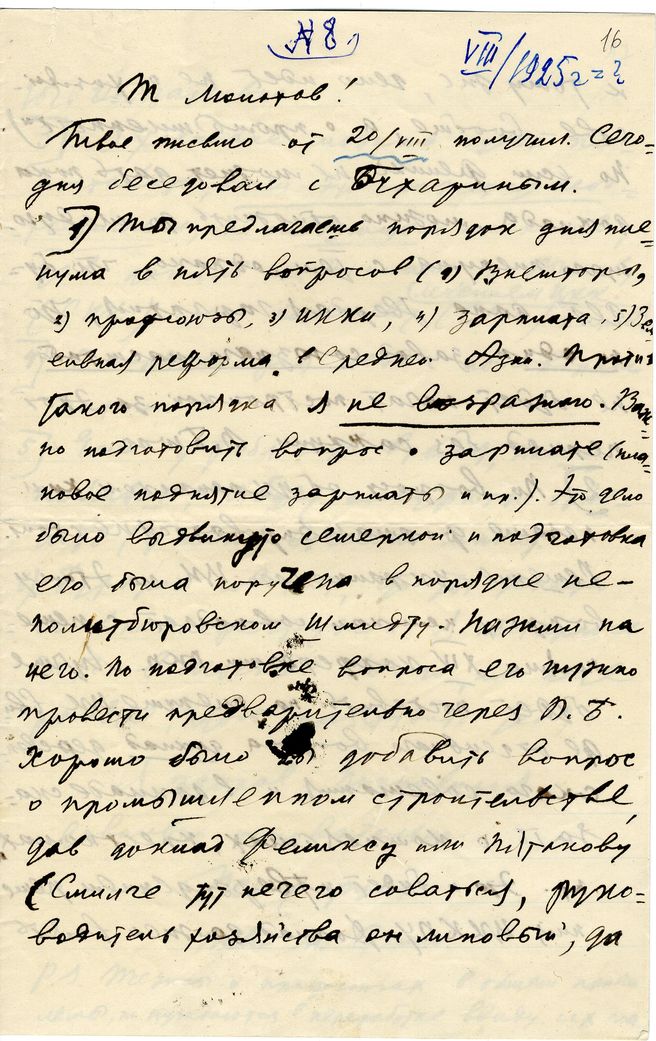 N 8
16
VIII/1925 г = ?
Т Молотов!
Твое письмо от 20/VIII получил. Сего=
дня беседовал с Бухариным.
1) Ты предлагаешь порядок дня пле=
нума в пять вопросов (1) Внешторг,
2) профсоюзы, 3) ИККИ, 4) зарплата, 5) Зем
ельная реформа в Средней Азии. Против
такого порядка я не возражаю. Важ=
но подготовить вопрос о зарплате (пла=
новое поднятие зарплаты и пр.). Это дело
было выдвинуто семеркой и подготовка
его была поручена в порядке не-
политбюровском Шмидту. Нажми на
него. По подготовке вопроса его нужно
провести предварительно через П. Б.
Хорошо было бы добавить вопрос
о промышленном строительстве,
дав доклад Феликсу или Пятакову
(Смилге тут нечего соваться, руко=
водитель хозяйства он липовый, да